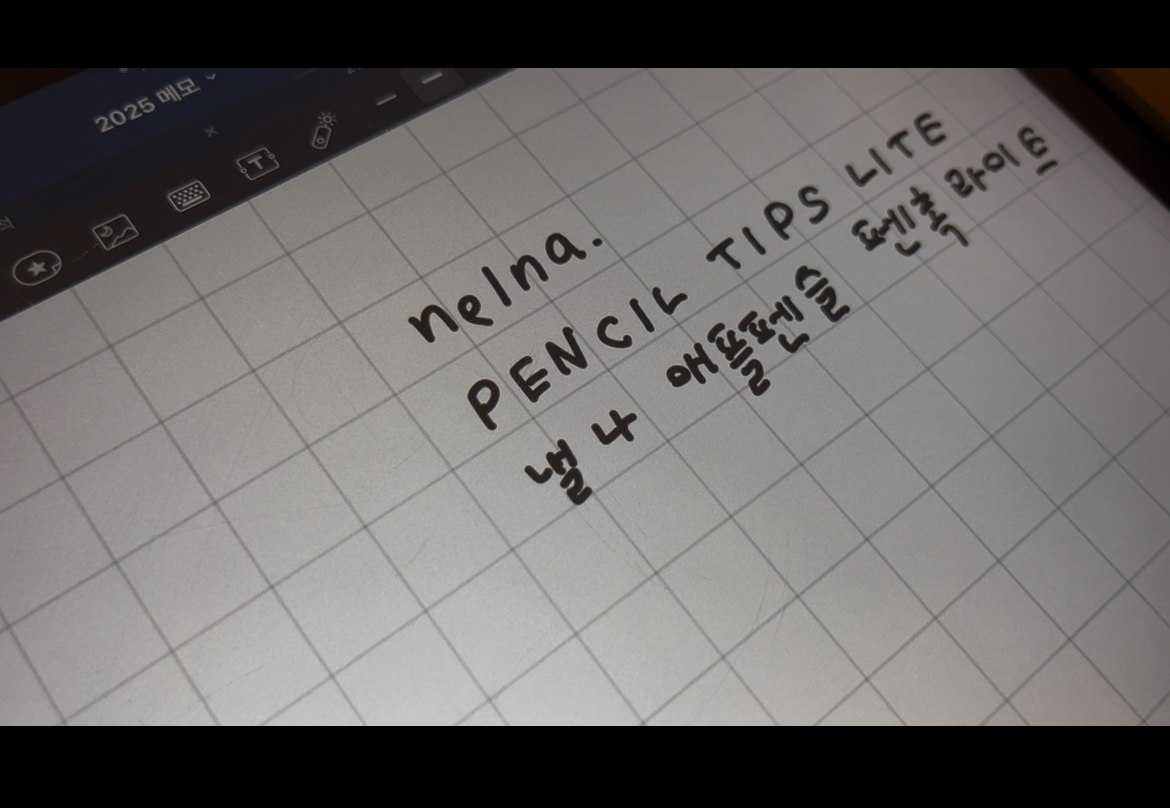 2025 메모
nelna.
PENCIL TIPS LITE
낼나 애플펜슬 펜촉 라이트